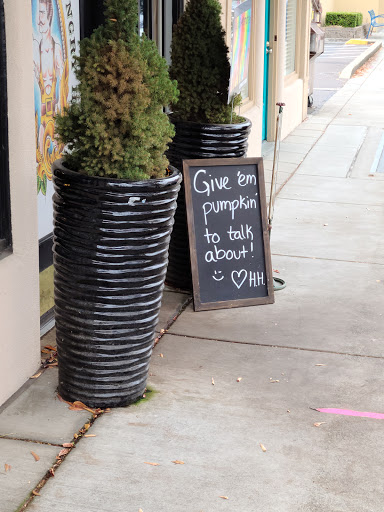 Give 'em
pumpkin
to talk
about!
H.H.